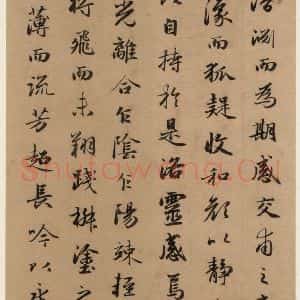 淵而為期感交甫之
豫而狐疑收和顏以靜
以自持於是洛靈感焉
光離合乍陰乍陽竦輕
將飛而未翔踐椒塗之
薄而流芳超長吟以永
Shufawang.Cn